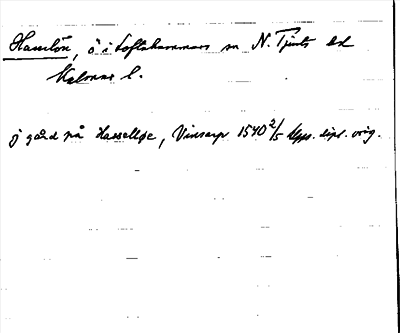 Hasselön, ö i Loftahammars sn N. Tjusts hd
Kalmar l.
j gård på Hasselløe, Vinsarp 1540 2/5 Upps. dipl. orig.